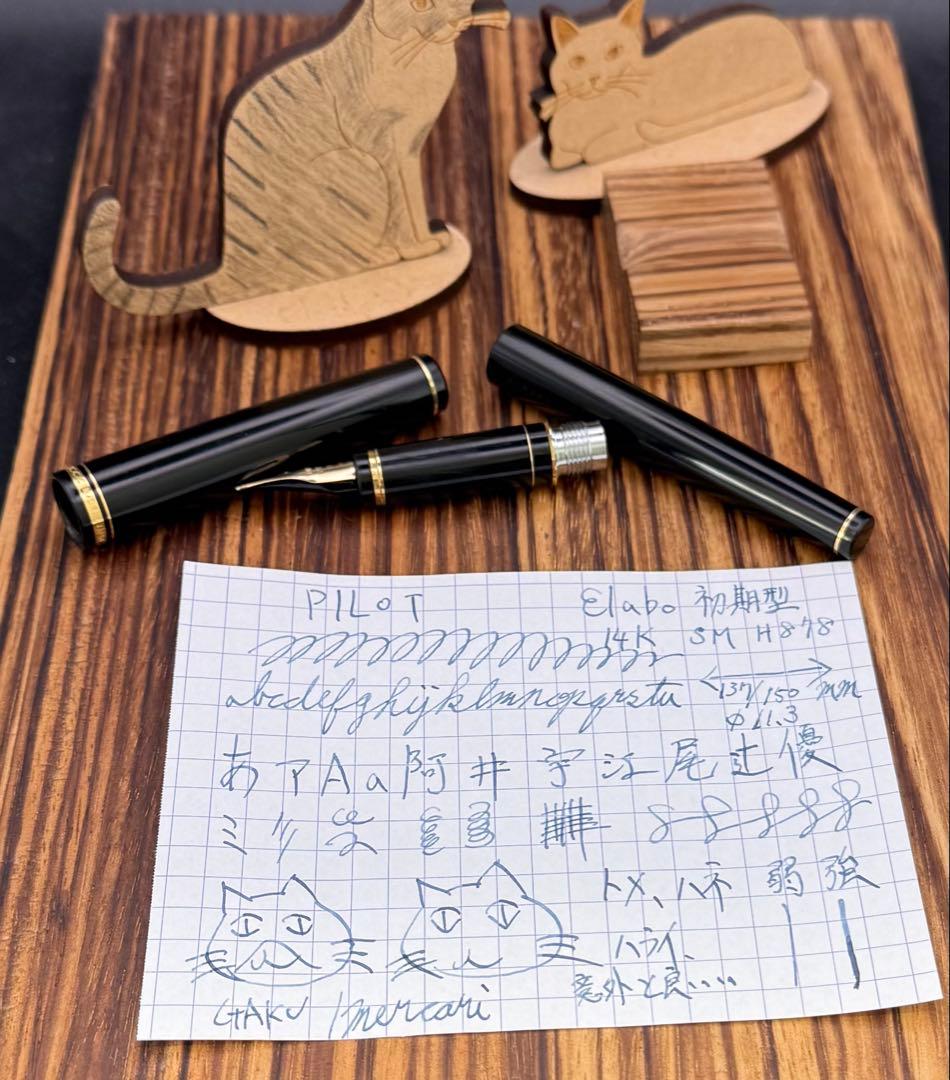 PILOT Elabo 初期型
14K SM H878
abcdefghijklmnopqrstu 137/150 mm
φ11.3
あ ア A a 阿 井 宇 江 尾 辻 優
ミ ツ
トメ、ハネ 弱 強
ハライ、
意外と良‥‥
GAKU /mercari